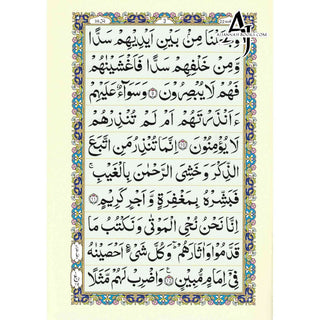 وَجَعَلْنَا مِنْۢ بَيْنِ اَيْدِيْهِمْ سَدًّا
وَّمِنْ خَلْفِهِمْ سَدًّا فَاَغْشَيْنٰهُمْ
فَهُمْ لَا يُبْصِرُوْنَ ۝٩ وَسَوَآءٌ عَلَيْهِمْ
ءَاَنْذَرْتَهُمْ اَمْ لَمْ تُنْذِرْهُمْ
لَا يُؤْمِنُوْنَ ۝١٠ اِنَّمَا تُنْذِرُ مَنِ اتَّبَعَ
الذِّكْرَ وَخَشِيَ الرَّحْمٰنَ بِالْغَيْبِ ۚ
فَبَشِّرْهُ بِمَغْفِرَةٍ وَّاَجْرٍ كَرِيْمٍ ۝١١
اِنَّا نَحْنُ نُحْيِ الْمَوْتٰى وَنَكْتُبُ مَا
قَدَّمُوْا وَاٰثَارَهُمْ ۗ وَكُلَّ شَيْءٍ اَحْصَيْنٰهُ
فِيْٓ اِمَامٍ مُّبِيْنٍ ۝١٢ وَاضْرِبْ لَهُمْ مَّثَلًا